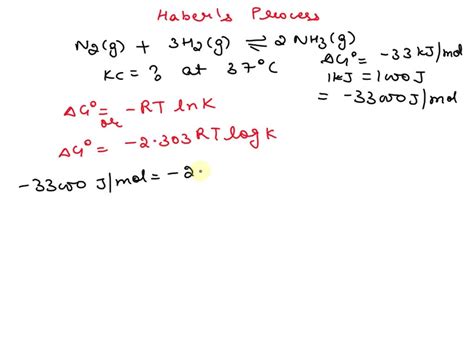 Haber's Process
N₂(g) + 3H₂(g) ⇌ 2 NH₃(g)
Kc = ? at 37°C
ΔG° = -33 kJ/mol
1kJ = 1000J
= -33000 J/mol
ΔG° = -RT lnK
or
ΔG° = -2.303 RT log K
-33000 J/mol = -2.